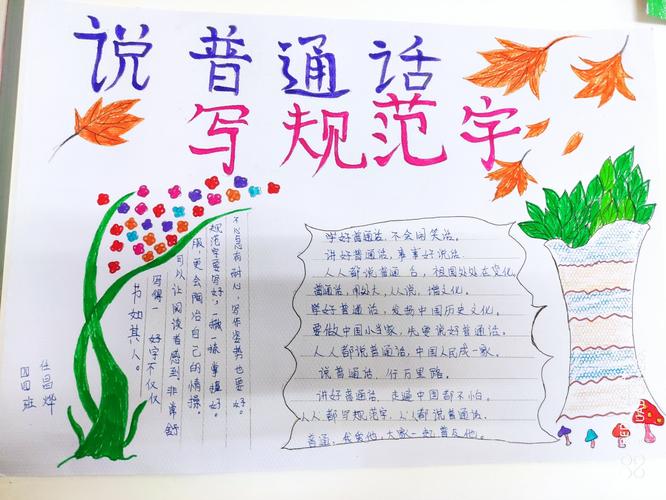 说普通话
写规范字
学好普通话,不会闹笑话。
讲好普通话,事事好说话
人人都说普通 ,祖国处处在变化。
普通话,用处大,人人说,增文化。
学好普通话,发扬中国历史文化。
要做中国小当家,先要说好普通话。
人人都说普通话,中国人民成一家。
说普通话,行万里路。
讲好普通话,走遍中国都不怕。
人人都写规范字,人人都说普通话。
大家一起普及他。
不心急有耐心,写字姿势也要好。
规范字要写好,一横一竖掌握好。
服,更会陶冶自己的情操。
可以让阅读者感到非常舒
写得一 好字不仅仅
书如其人。
四四班